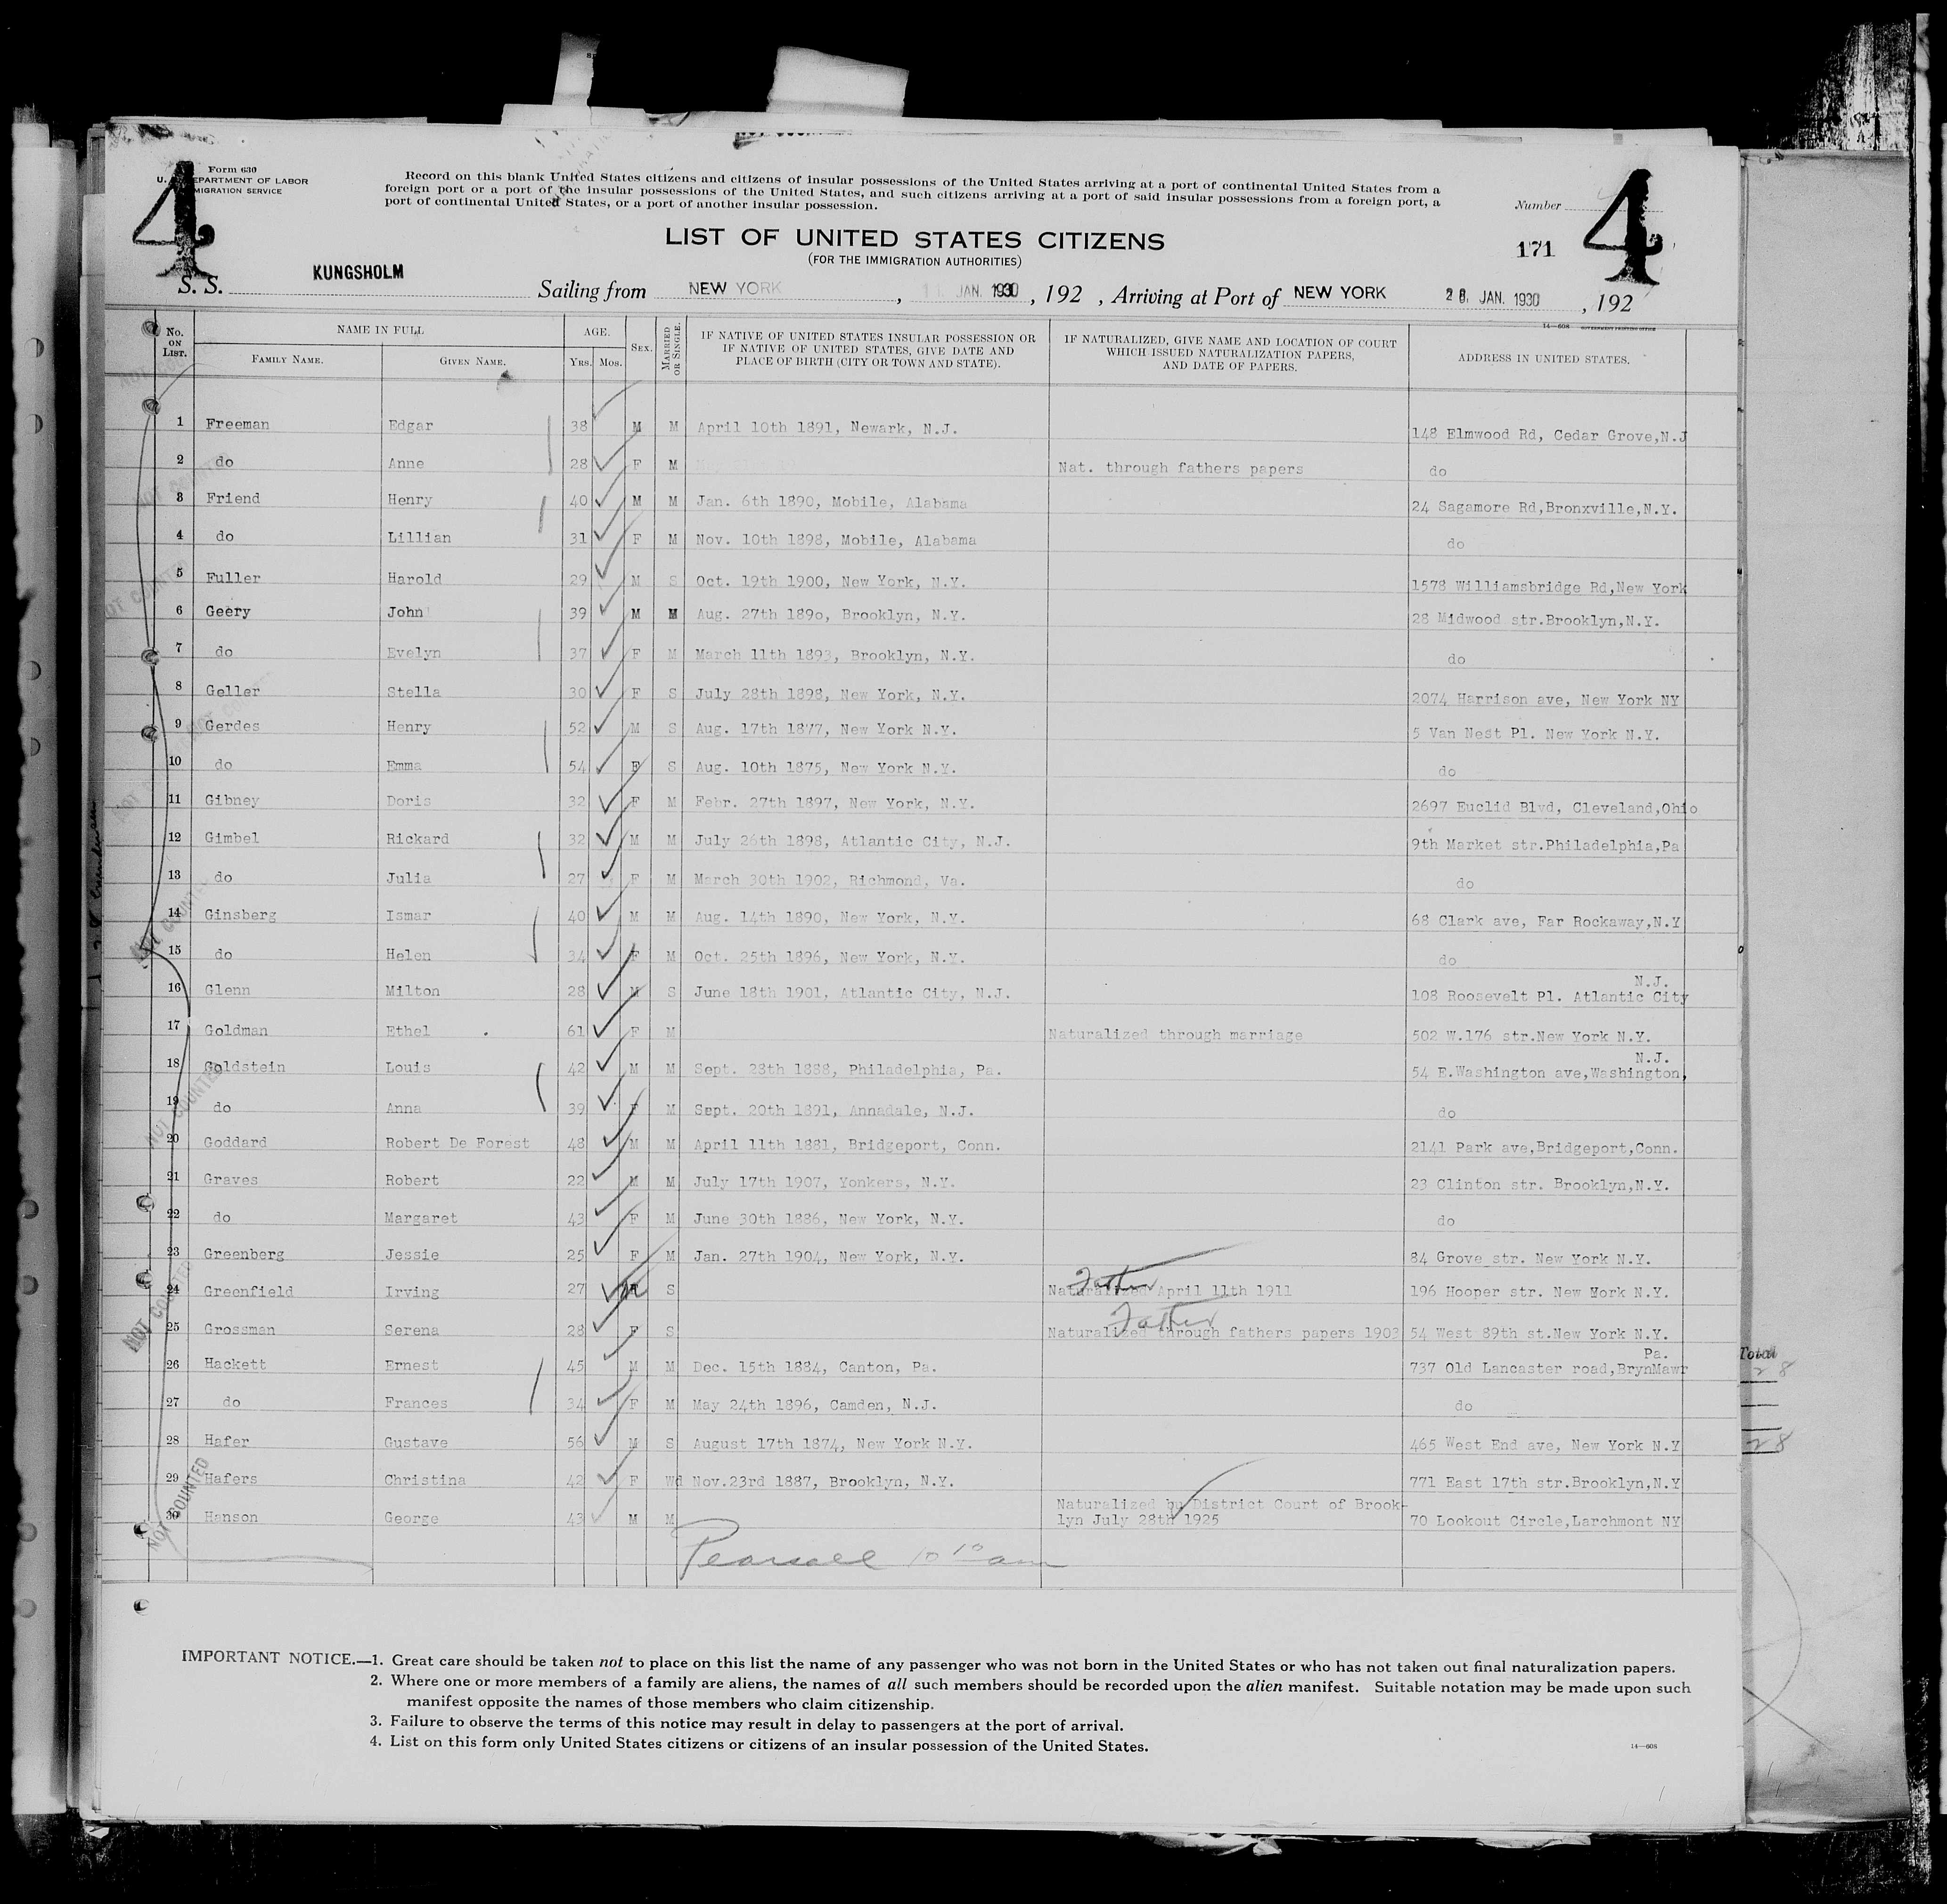 4
4
Form 630
U. S. DEPARTMENT OF LABOR
IMMIGRATION SERVICE
Record on this blank United States citizens and citizens of insular possessions of the United States arriving at a port of continental United States from a
foreign port or a port of the insular possessions of the United States, and such citizens arriving at a port of said insular possessions from a foreign port, a
port of continental United States, or a port of another insular possession.
Number
LIST OF UNITED STATES CITIZENS
(FOR THE IMMIGRATION AUTHORITIES)
171
S. S. KUNGSHOLM Sailing from NEW YORK, JAN. 1930, 192 , Arriving at Port of NEW YORK 28 JAN. 1930, 192
14—608 GOVERNMENT PRINTING OFFICE
No. ON LIST. NAME IN FULL FAMILY NAME. GIVEN NAME. AGE. YRS. MOS. SEX. MARRIED OR SINGLE. IF NATIVE OF UNITED STATES INSULAR POSSESSION OR IF NATIVE OF UNITED STATES, GIVE DATE AND PLACE OF BIRTH (CITY OR TOWN AND STATE). IF NATURALIZED, GIVE NAME AND LOCATION OF COURT WHICH ISSUED NATURALIZATION PAPERS, AND DATE OF PAPERS. ADDRESS IN UNITED STATES.
1 Freeman Edgar 38 M M April 10th 1891, Newark, N.J. 148 Elmwood Rd, Cedar Grove,N.J
2 do Anne 28 F M Nat. through fathers papers do
3 Friend Henry 40 M M Jan. 6th 1890, Mobile, Alabama 24 Sagamore Rd,Bronxville,N.Y.
4 do Lillian 31 F M Nov. 10th 1898, Mobile, Alabama do
5 Fuller Harold 29 M S Oct. 19th 1900, New York, N.Y. 1578 Williamsbridge Rd,New York
6 Geery John 39 M M Aug. 27th 189o, Brooklyn, N.Y. 28 Midwood str.Brooklyn,N.Y.
7 do Evelyn 37 F M March 11th 1893, Brooklyn, N.Y. do
8 Geller Stella 30 F S July 28th 1898, New York, N.Y. 2074 Harrison ave, New York NY
9 Gerdes Henry 52 M S Aug. 17th 1877, New York N.Y. 5 Van Nest Pl. New York N.Y.
10 do Emma 54 F S Aug. 10th 1875, New York N.Y. do
11 Gibney Doris 32 F M Febr. 27th 1897, New York, N.Y. 2697 Euclid Blvd, Cleveland,Ohio
12 Gimbel Rickard 32 M M July 26th 1898, Atlantic City, N.J. 9th Market str.Philadelphia,Pa
13 do Julia 27 F M March 30th 1902, Richmond, Va. do
14 Ginsberg Ismar 40 M M Aug. 14th 1890, New York, N.Y. 68 Clark ave, Far Rockaway,N.Y
15 do Helen 34 F M Oct. 25th 1896, New York, N.Y. do
16 Glenn Milton 28 M S June 18th 1901, Atlantic City, N.J. 108 Roosevelt Pl. Atlantic City N.J.
17 Goldman Ethel 61 F M Naturalized through marriage 502 W.176 str.New York N.Y.
18 Goldstein Louis 42 M M Sept. 28th 1888, Philadelphia, Pa. 54 E.Washington ave,Washington, N.J.
19 do Anna 39 F M Sept. 20th 1891, Annadale, N.J. do
20 Goddard Robert De Forest 48 M M April 11th 1881, Bridgeport, Conn. 2141 Park ave,Bridgeport,Conn.
21 Graves Robert 22 M M July 17th 1907, Yonkers, N.Y. 23 Clinton str. Brooklyn,N.Y.
22 do Margaret 43 F M June 30th 1886, New York, N.Y. do
23 Greenberg Jessie 25 F M Jan. 27th 1904, New York, N.Y. 84 Grove str. New York N.Y.
24 Greenfield Irving 27 M S Father Naturalized April 11th 1911 196 Hooper str. New York N.Y.
25 Grossman Serena 28 F S Father Naturalized through fathers papers 1903 54 West 89th st.New York N.Y.
26 Hackett Ernest 45 M M Dec. 15th 1884, Canton, Pa. 737 Old Lancaster road,BrynMawr Pa.
27 do Frances 34 F M May 24th 1896, Camden, N.J. do
28 Hafer Gustave 56 M S August 17th 1874, New York N.Y. 465 West End ave, New York N.Y
29 Hafers Christina 42 F Wd Nov.23rd 1887, Brooklyn, N.Y. 771 East 17th str.Brooklyn,N.Y
30 Hanson George 43 M M Naturalized by District Court of Brook-
lyn July 28th 1925 70 Lookout Circle,Larchmont NY
Total
28
28
Pearsall 10 10 am
NOT COUNTED
NOT COUNTED
NOT COUNTED
NOT COUNTED
NOT COUNTED
IMPORTANT NOTICE.—1. Great care should be taken not to place on this list the name of any passenger who was not born in the United States or who has not taken out final naturalization papers.
2. Where one or more members of a family are aliens, the names of all such members should be recorded upon the alien manifest. Suitable notation may be made upon such
manifest opposite the names of those members who claim citizenship.
3. Failure to observe the terms of this notice may result in delay to passengers at the port of arrival.
4. List on this form only United States citizens or citizens of an insular possession of the United States.
14—608